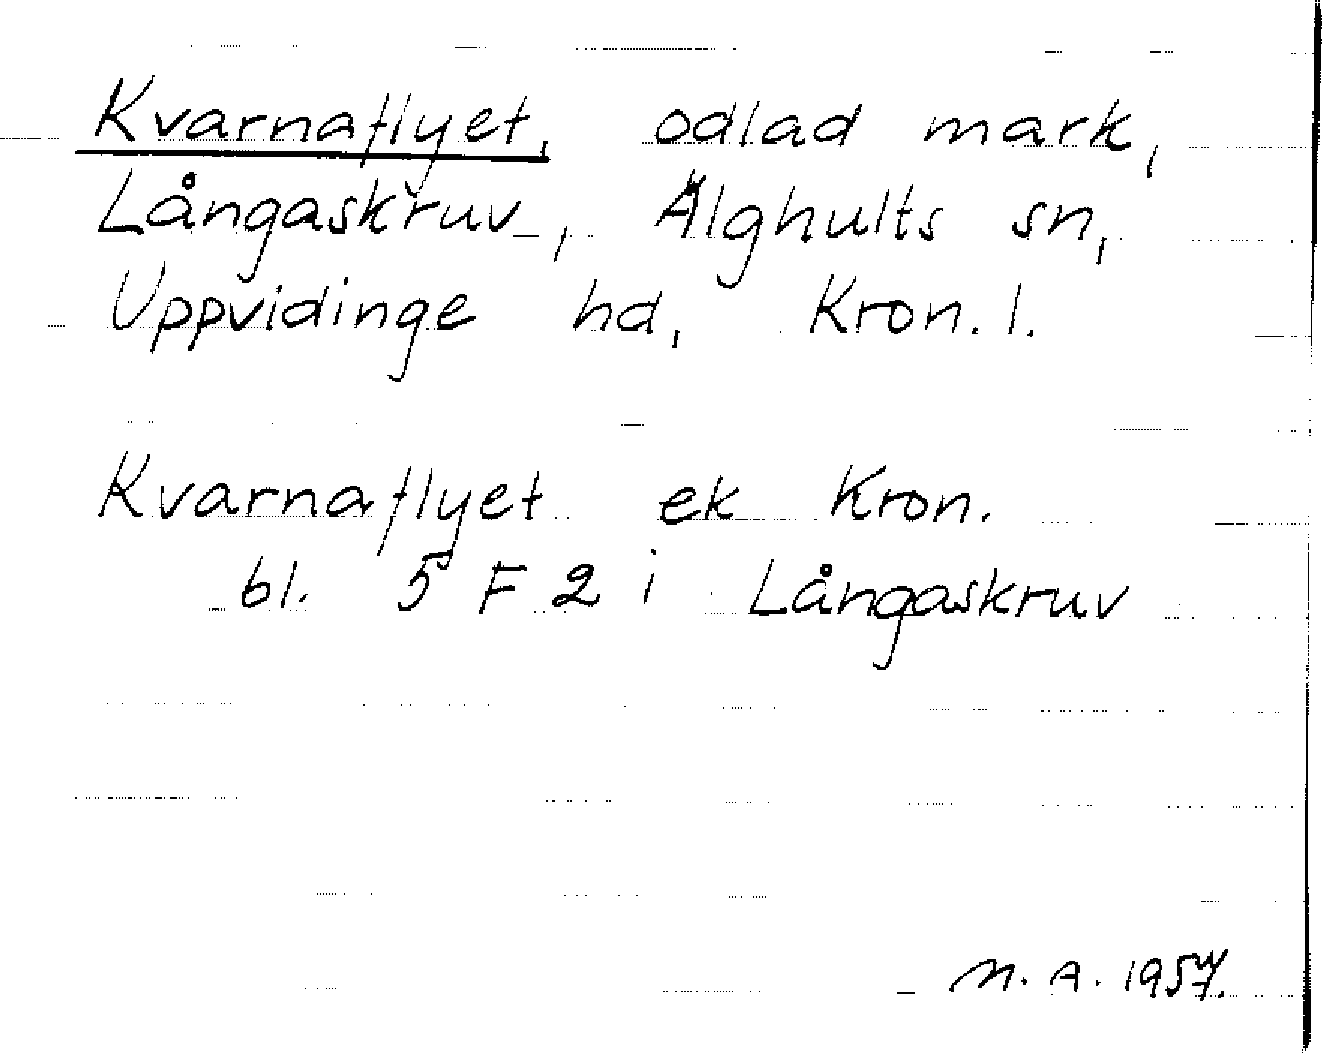 Kvarnaflyet, odlad mark,
Långaskruv, Älghults sn,
Uppvidinge hd, Kron. l.
Kvarnaflyet ek Kron.
bl. 5 F 2 i Långaskruv
N. A. 1957.